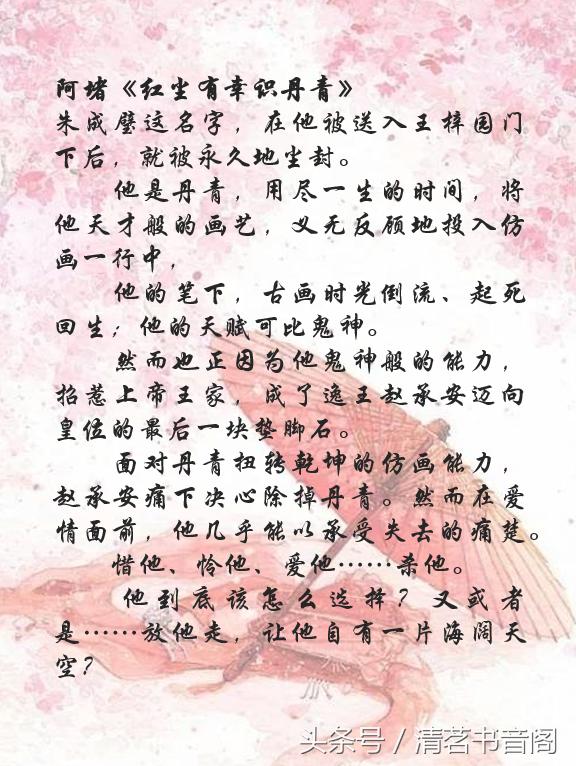 阿堵《红尘有幸识丹青》
朱成璧这名字，在他被送入王梓园门
下后，就被永久地尘封。
他是丹青，用尽一生的时间，将
他天才般的画艺，义无反顾地投入仿
画一行中，
他的笔下，古画时光倒流、起死
回生；他的天赋可比鬼神。
然而也正因为他鬼神般的能力，
招惹上帝王家，成了逸王赵承安迈向
皇位的最后一块垫脚石。
面对丹青扭转乾坤的仿画能力，
赵承安痛下决心除掉丹青。然而在爱
情面前，他几乎能以承受失去的痛楚。
惜他、怜他、爱他……杀他。
他到底该怎么选择？又或者
是……放他走，让他自有一片海阔天
空？
头条号／清茗书音阁